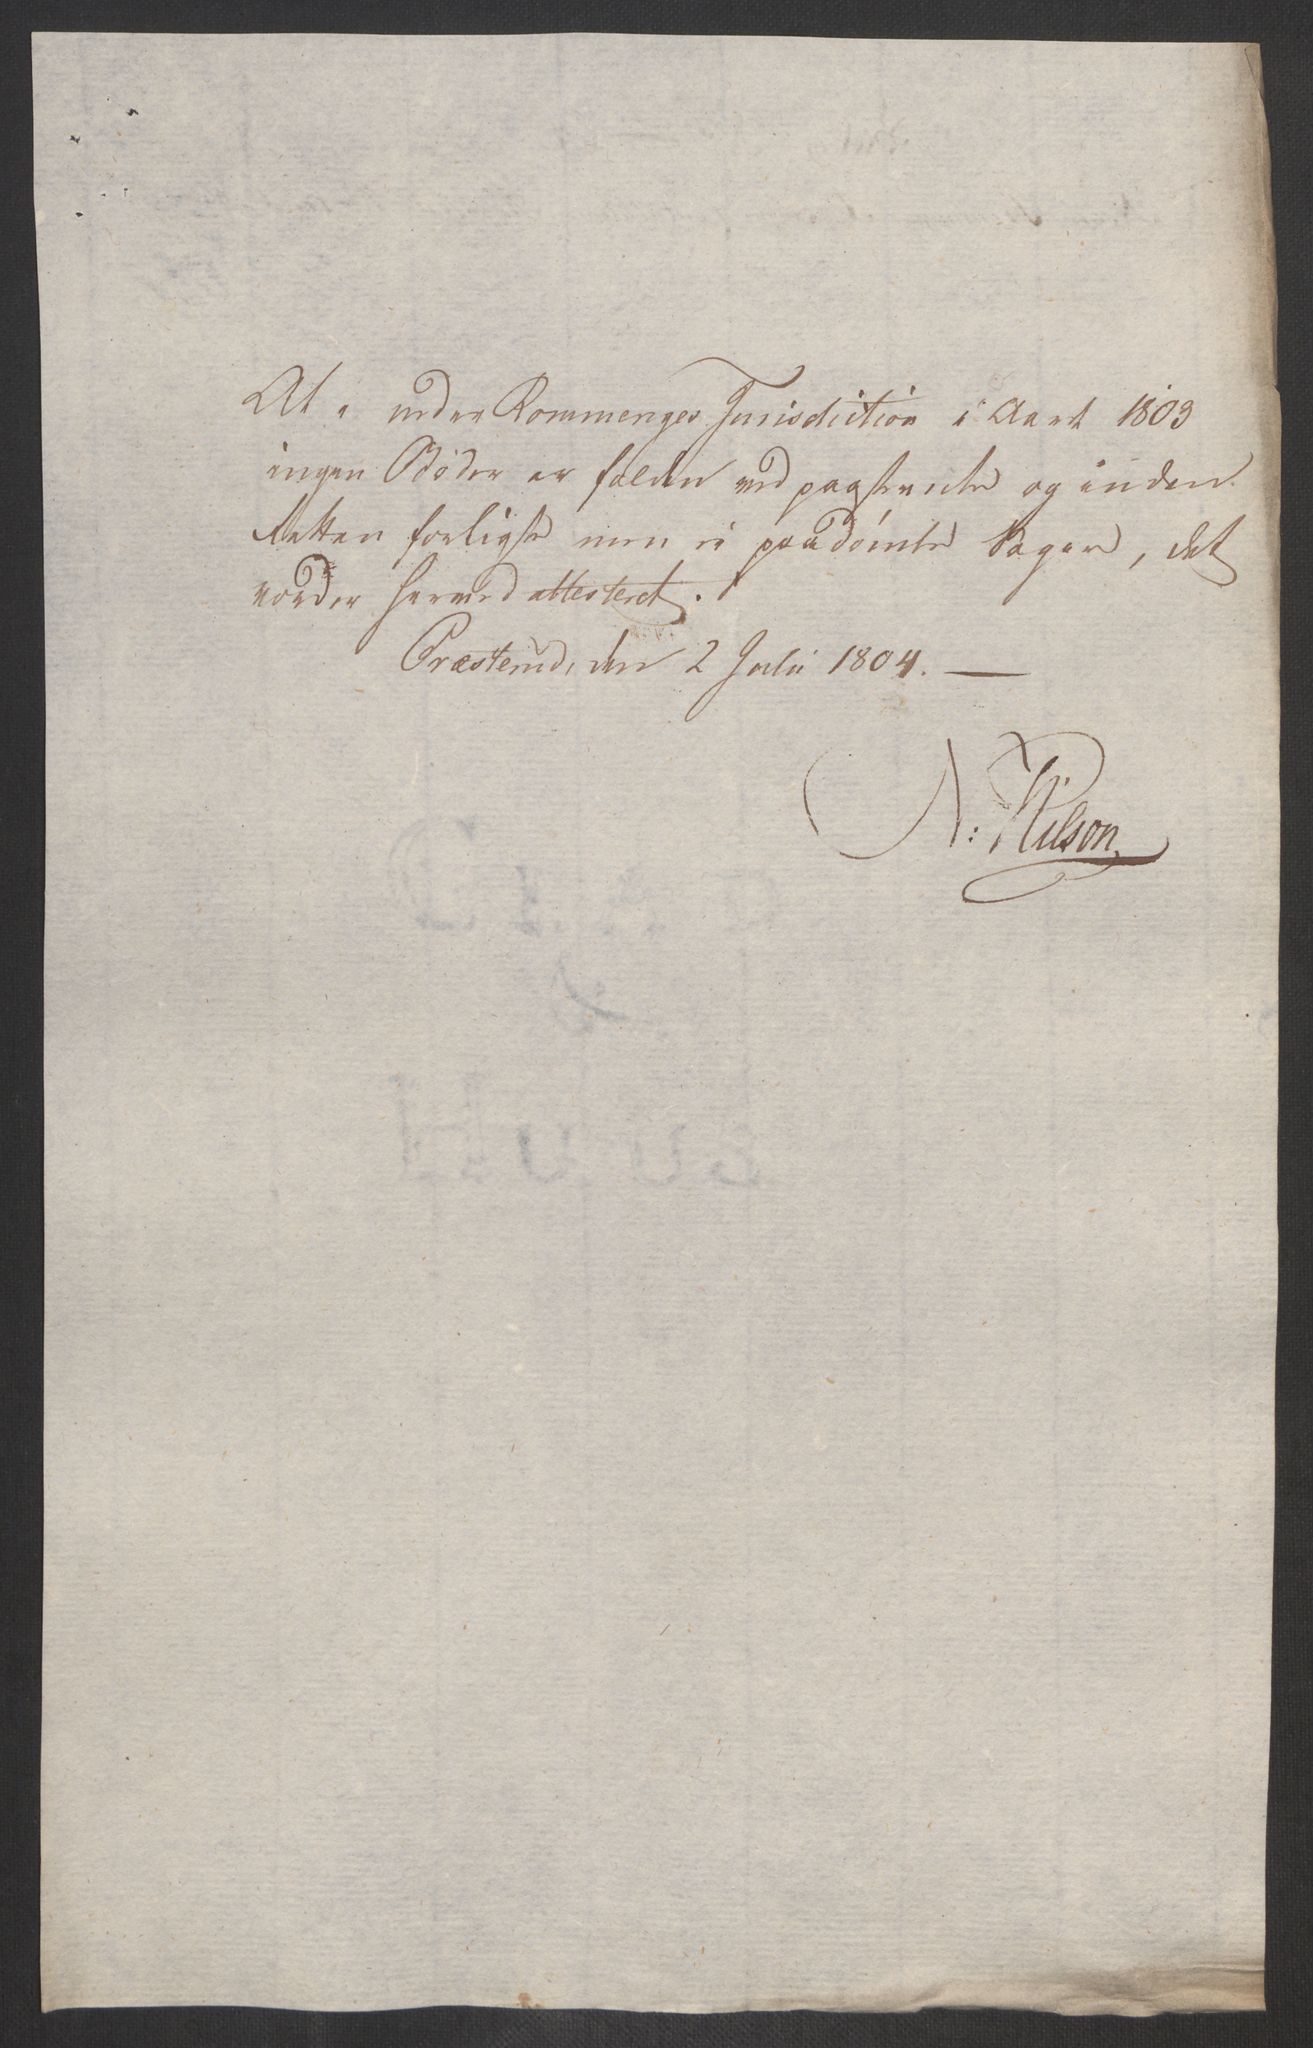 At i under Rommenges Jurisdiction i Aaret 1803
ingen Bøder er falden ved paastevnte og inden
Retten forligte men ei paadømte Sager, det
vorder herved attesteret.
Præsterud, den 2 Julii 1804. —
N: Wilson